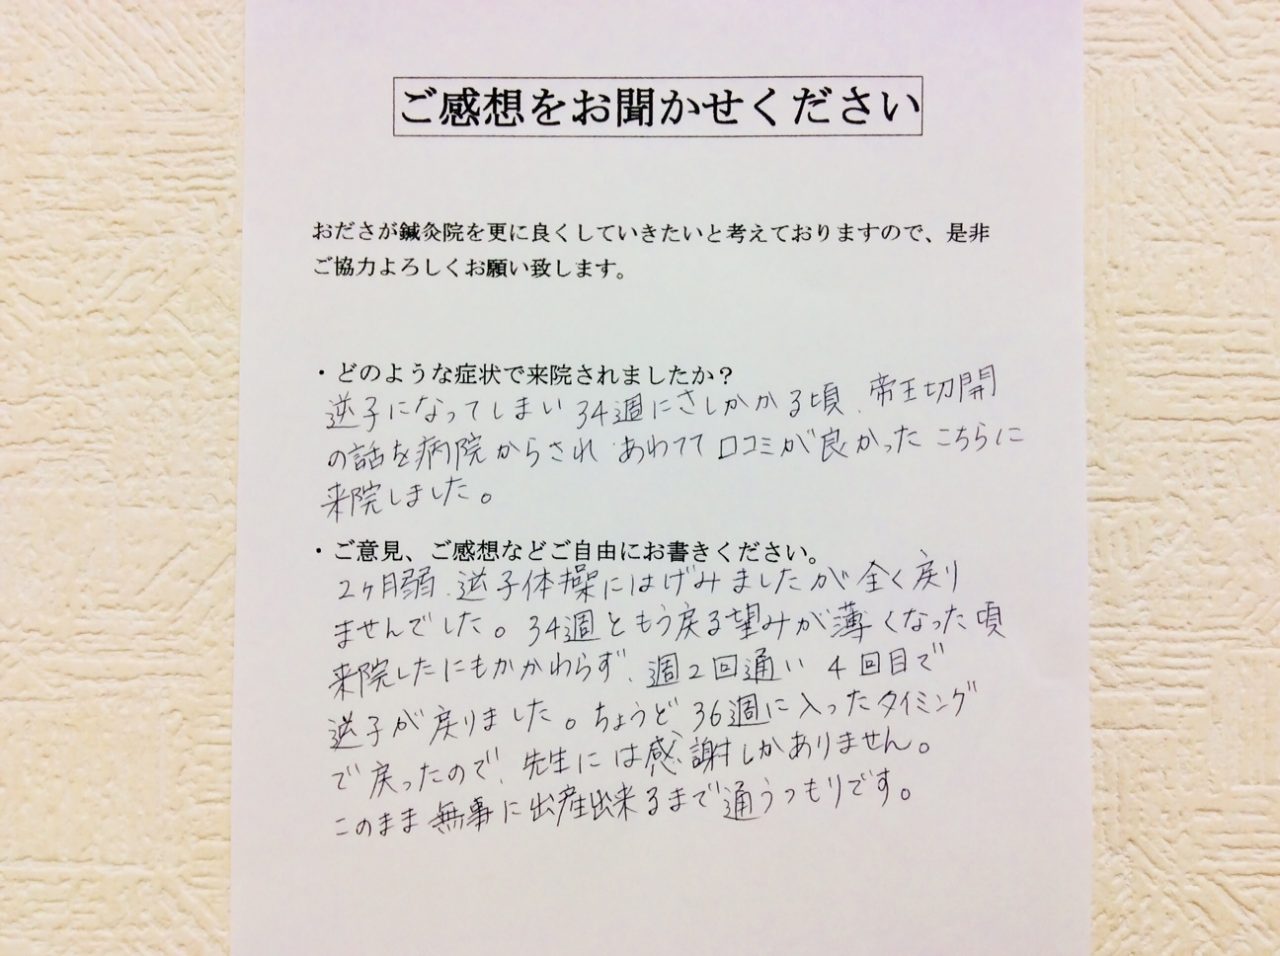 ご感想をお聞かせください
おださが鍼灸院を更に良くしていきたいと考えておりますので、是非
ご協力よろしくお願い致します。
・どのような症状で来院されましたか？
逆子になってしまい34週にさしかかる頃、帝王切開
の話を病院からされ あわてて口コミが良かったこちらに
来院しました。
・ご意見、ご感想などご自由にお書きください。
2ヶ月弱、逆子体操にはげみましたが全く戻り
ませんでした。34週ともう戻る望みが薄くなった頃
来院したにもかかわらず、週2回通い 4回目で
逆子が戻りました。ちょうど36週に入ったタイミング
で戻ったので、先生には感謝しかありません。
このまま無事に出産出来るまで通うつもりです。